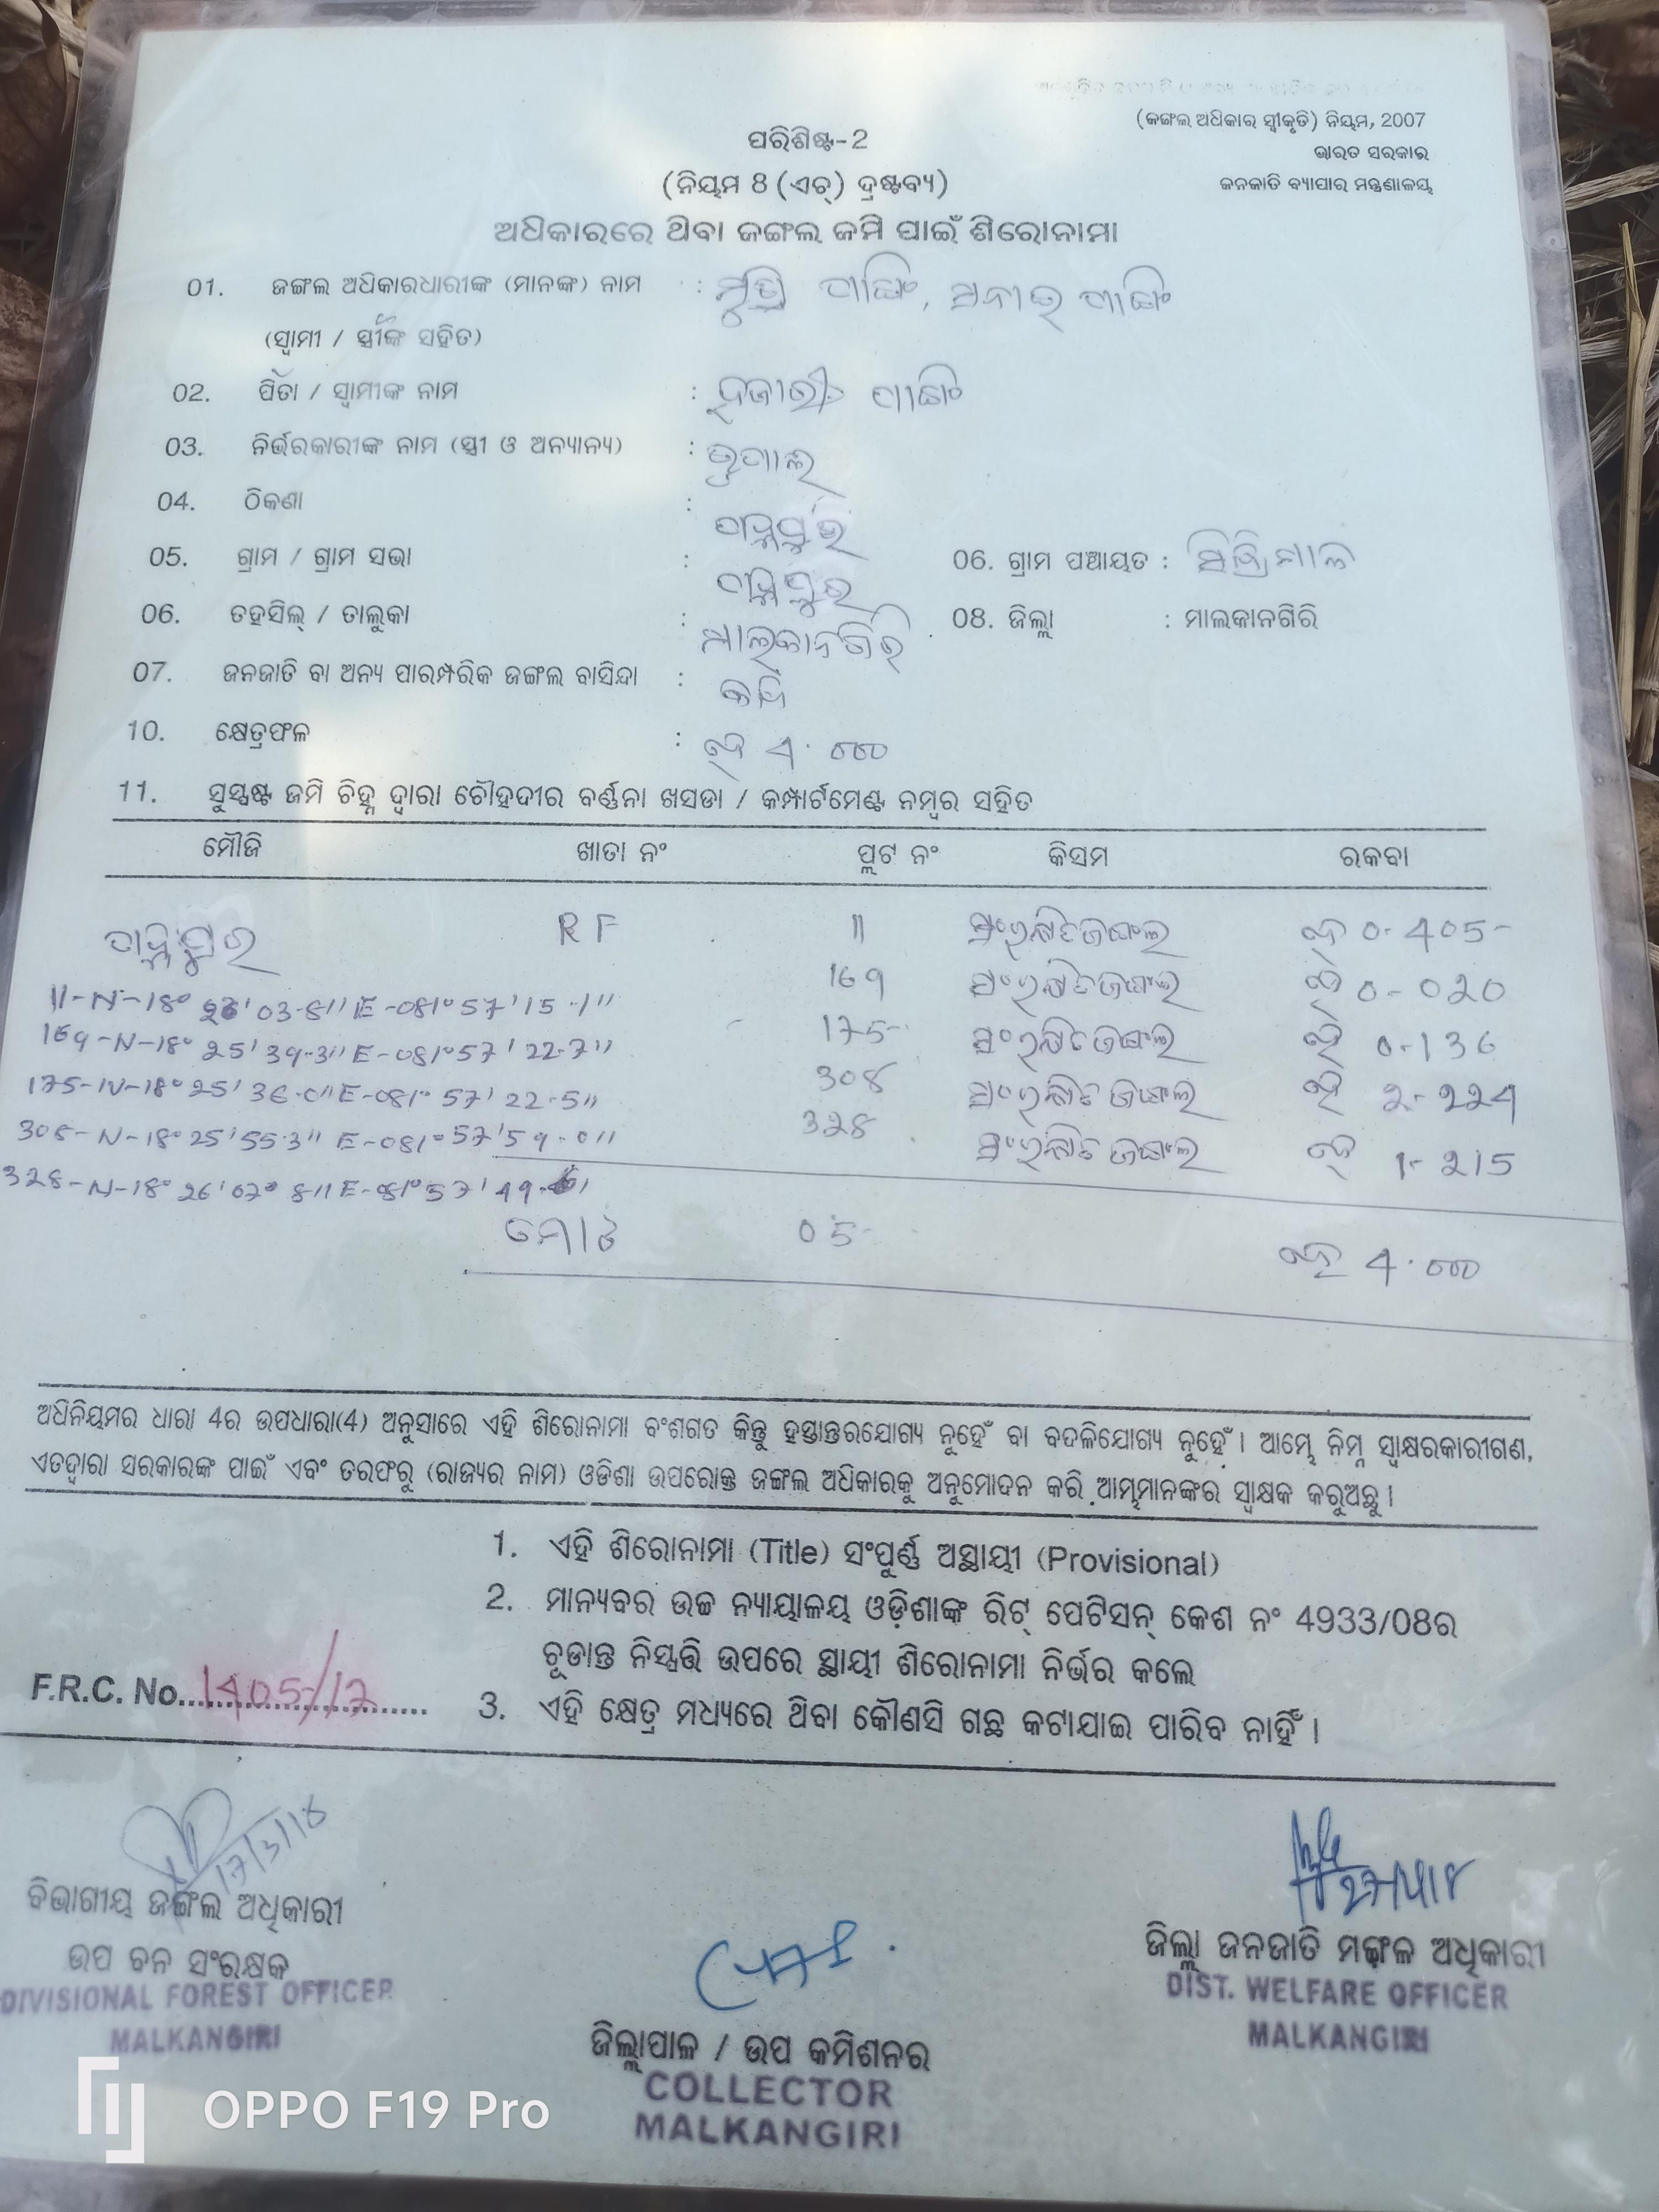 (ଜଙ୍ଗଲ ଅଧିକାର ସ୍ଵୀକୃତି) ନିୟମ, 2007
ଭାରତ ସରକାର
ଜନଜାତି ବ୍ୟାପାର ମନ୍ତ୍ରଣାଳୟ
ପରିଶିଷ୍ଟ-2
(ନିୟମ 8 (ଏଚ୍) ଦ୍ରଷ୍ଟବ୍ୟ)
ଅଧିକାରରେ ଥିବା ଜଙ୍ଗଲ ଜମି ପାଇଁ ଶିରୋନାମା
01. ଜଙ୍ଗଲ ଅଧିକାରଧାରୀଙ୍କ (ମାନଙ୍କ) ନାମ :
(ସ୍ଵାମୀ / ସ୍ତ୍ରୀଙ୍କ ସହିତ)
02. ପିତା / ସ୍ଵାମୀଙ୍କ ନାମ :
03. ନିର୍ଭରକାରୀଙ୍କ ନାମ (ସ୍ତ୍ରୀ ଓ ଅନ୍ୟାନ୍ୟ) :
04. ଠିକଣା :
05. ଗ୍ରାମ / ଗ୍ରାମ ସଭା : 06. ଗ୍ରାମ ପଞ୍ଚାୟତ :
06. ତହସିଲ୍ / ତାଲୁକା : ମାଲକାନଗିରି 08. ଜିଲ୍ଲା : ମାଲକାନଗିରି
07. ଜନଜାତି ବା ଅନ୍ୟ ପାରମ୍ପରିକ ଜଙ୍ଗଲ ବାସିନ୍ଦା :
10. କ୍ଷେତ୍ରଫଳ : ହେ 4.000
11. ସୁସ୍ପଷ୍ଟ ଜମି ଚିହ୍ନ ଦ୍ଵାରା ଚୌହଦୀର ବର୍ଣ୍ଣନା ଖସଡା / କମ୍ପାର୍ଟମେଣ୍ଟ ନମ୍ବର ସହିତ
ମୌଜି ଖାତା ନଂ ପ୍ଲଟ ନଂ କିସମ ରକବା
RF 11 ସଂରକ୍ଷିତ ଜଙ୍ଗଲ ହେ 0-405
169 ସଂରକ୍ଷିତ ଜଙ୍ଗଲ ହେ 0-020
175 ସଂରକ୍ଷିତ ଜଙ୍ଗଲ ହେ 0-136
308 ସଂରକ୍ଷିତ ଜଙ୍ଗଲ ହେ 2-224
328 ସଂରକ୍ଷିତ ଜଙ୍ଗଲ ହେ 1-215
11-N-18° 26' 03.8" E-081° 57' 15.1"
169-N-18° 25' 39.3" E-081° 57' 22.7"
175-N-18° 25' 36.0" E-081° 57' 22.5"
308-N-18° 25' 55.3" E-081° 57' 59.0"
328-N-18° 26' 07.8" E-081° 57' 49.
ମୋଟ 05 ହେ 4.000
ଅଧିନିୟମର ଧାରା 4ର ଉପଧାରା(4) ଅନୁସାରେ ଏହି ଶିରୋନାମା ବଂଶଗତ କିନ୍ତୁ ହସ୍ତାନ୍ତରଯୋଗ୍ୟ ନୁହେଁ ବା ବଦଳିଯୋଗ୍ୟ ନୁହେଁ। ଆମ୍ଭେ ନିମ୍ନ ସ୍ଵାକ୍ଷରକାରୀଗଣ,
ଏତଦ୍ଵାରା ସରକାରଙ୍କ ପାଇଁ ଏବଂ ତରଫରୁ (ରାଜ୍ୟର ନାମ) ଓଡିଶା ଉପରୋକ୍ତ ଜଙ୍ଗଲ ଅଧିକାରକୁ ଅନୁମୋଦନ କରି ଆମ୍ଭମାନଙ୍କର ସ୍ଵାକ୍ଷକ କରୁଅଛୁ।
1. ଏହି ଶିରୋନାମା (Title) ସଂପୂର୍ଣ୍ଣ ଅସ୍ଥାୟୀ (Provisional)
2. ମାନ୍ୟବର ଉଚ୍ଚ ନ୍ୟାୟାଳୟ ଓଡ଼ିଶାଙ୍କ ରିଟ୍ ପେଟିସନ୍ କେଶ ନଂ 4933/08ର
ଚୂଡାନ୍ତ ନିସ୍ପତ୍ତି ଉପରେ ସ୍ଥାୟୀ ଶିରୋନାମା ନିର୍ଭର କଲେ
F.R.C. No. 1405/17
3. ଏହି କ୍ଷେତ୍ର ମଧ୍ୟରେ ଥିବା କୌଣସି ଗଛ କଟାଯାଇ ପାରିବ ନାହିଁ।
17/3/18
ବିଭାଗୀୟ ଜଙ୍ଗଲ ଅଧିକାରୀ
ଉପ ବନ ସଂରକ୍ଷକ
DIVISIONAL FOREST OFFICER
MALKANGIRI
ଜିଲ୍ଲାପାଳ / ଉପ କମିଶନର
COLLECTOR
MALKANGIRI
ଜିଲ୍ଲା ଜନଜାତି ମଙ୍ଗଳ ଅଧିକାରୀ
DIST. WELFARE OFFICER
MALKANGIRI
OPPO F19 Pro